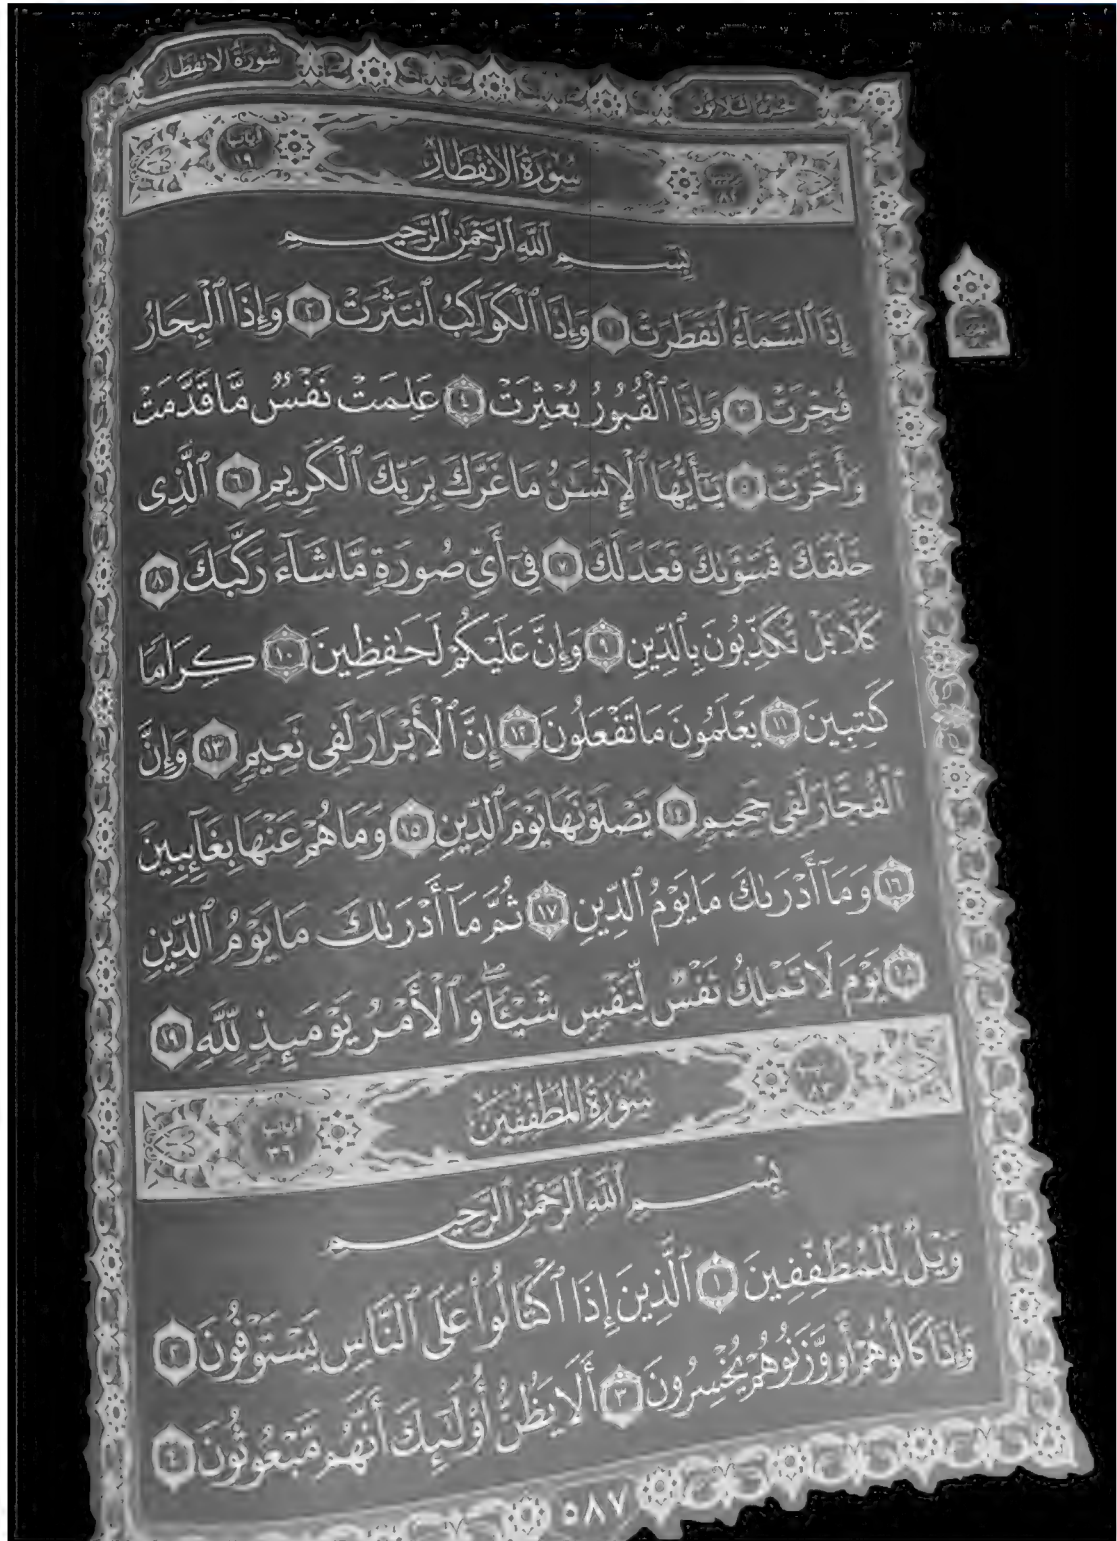 سُورَةُ الانفِطَار
الجزء الثلاثون
آياتها ١٩
سُورَةُ الانفِطَارِ
٨٢
بِسْمِ ٱللَّهِ ٱلرَّحْمَٰنِ ٱلرَّحِيمِ
إِذَا ٱلسَّمَآءُ ٱنفَطَرَتْ ١ وَإِذَا ٱلْكَوَاكِبُ ٱنتَثَرَتْ ٢ وَإِذَا ٱلْبِحَارُ
فُجِّرَتْ ٣ وَإِذَا ٱلْقُبُورُ بُعْثِرَتْ ٤ عَلِمَتْ نَفْسٌ مَّا قَدَّمَتْ
وَأَخَّرَتْ ٥ يَٰٓأَيُّهَا ٱلْإِنسَٰنُ مَا غَرَّكَ بِرَبِّكَ ٱلْكَرِيمِ ٦ ٱلَّذِى
خَلَقَكَ فَسَوَّىٰكَ فَعَدَلَكَ ٧ فِىٓ أَىِّ صُورَةٍ مَّا شَآءَ رَكَّبَكَ ٨
كَلَّا بَلْ تُكَذِّبُونَ بِٱلدِّينِ ٩ وَإِنَّ عَلَيْكُمْ لَحَٰفِظِينَ ١٠ كِرَامًا
كَٰتِبِينَ ١١ يَعْلَمُونَ مَا تَفْعَلُونَ ١٢ إِنَّ ٱلْأَبْرَارَ لَفِى نَعِيمٍ ١٣ وَإِنَّ
ٱلْفُجَّارَ لَفِى جَحِيمٍ ١٤ يَصْلَوْنَهَا يَوْمَ ٱلدِّينِ ١٥ وَمَا هُمْ عَنْهَا بِغَآئِبِينَ
١٦ وَمَآ أَدْرَىٰكَ مَا يَوْمُ ٱلدِّينِ ١٧ ثُمَّ مَآ أَدْرَىٰكَ مَا يَوْمُ ٱلدِّينِ
١٨ يَوْمَ لَا تَمْلِكُ نَفْسٌ لِّنَفْسٍ شَيْـًٔا ۖ وَٱلْأَمْرُ يَوْمَئِذٍ لِّلَّهِ ١٩
آياتها ٣٦
سُورَةُ المُطَفِّفِينَ
٨٣
بِسْمِ ٱللَّهِ ٱلرَّحْمَٰنِ ٱلرَّحِيمِ
وَيْلٌ لِّلْمُطَفِّفِينَ ١ ٱلَّذِينَ إِذَا ٱكْتَالُوا۟ عَلَى ٱلنَّاسِ يَسْتَوْفُونَ ٢
وَإِذَا كَالُوهُمْ أَو وَّزَنُوهُمْ يُخْسِرُونَ ٣ أَلَا يَظُنُّ أُو۟لَٰٓئِكَ أَنَّهُم مَّبْعُوثُونَ ٤
٥٨٧